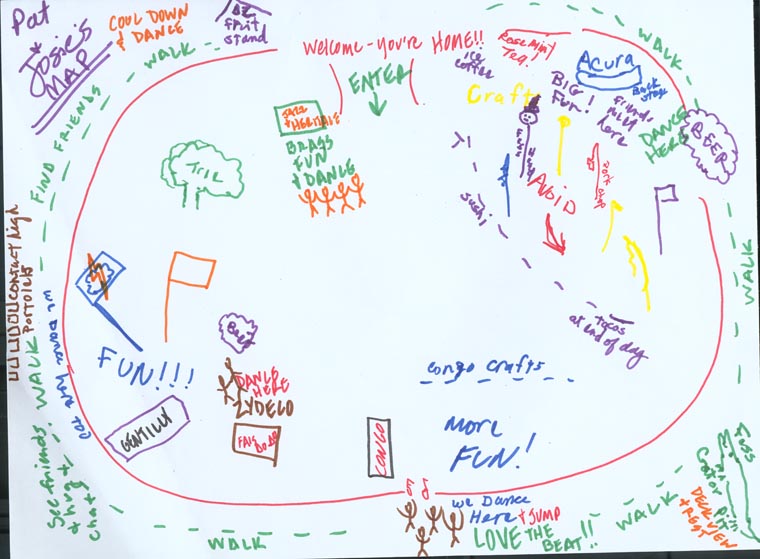 Pat
& Josie's
MAP
COOL DOWN
& DANCE
fruit
stand
Welcome - you're HOME!!
ENTER
JAZZ
& HERITAGE
BRASS
FUN
& DANCE
Tree
FIND FRIENDS
WALK
ice
coffee
Rose Mint
Tea!
Crafts
BIG
Fun!
Acura
Back
stage
friends
meet
here
WALK
DANCE
HERE
BEER
AVOID
sushi
tacos
at end of day
WALK
contact high
Portolets
FUN!!!
GENTILLY
WALK
See friends
& hug &
chat
Beer
DANCE
HERE
ZYDECO
FAIS
DO DO
CONGO
congo crafts
MORE
FUN!
we Dance
Here & JUMP
LOVE THE
BEAT!!
WALK
WALK
DECK VIEW
& REST